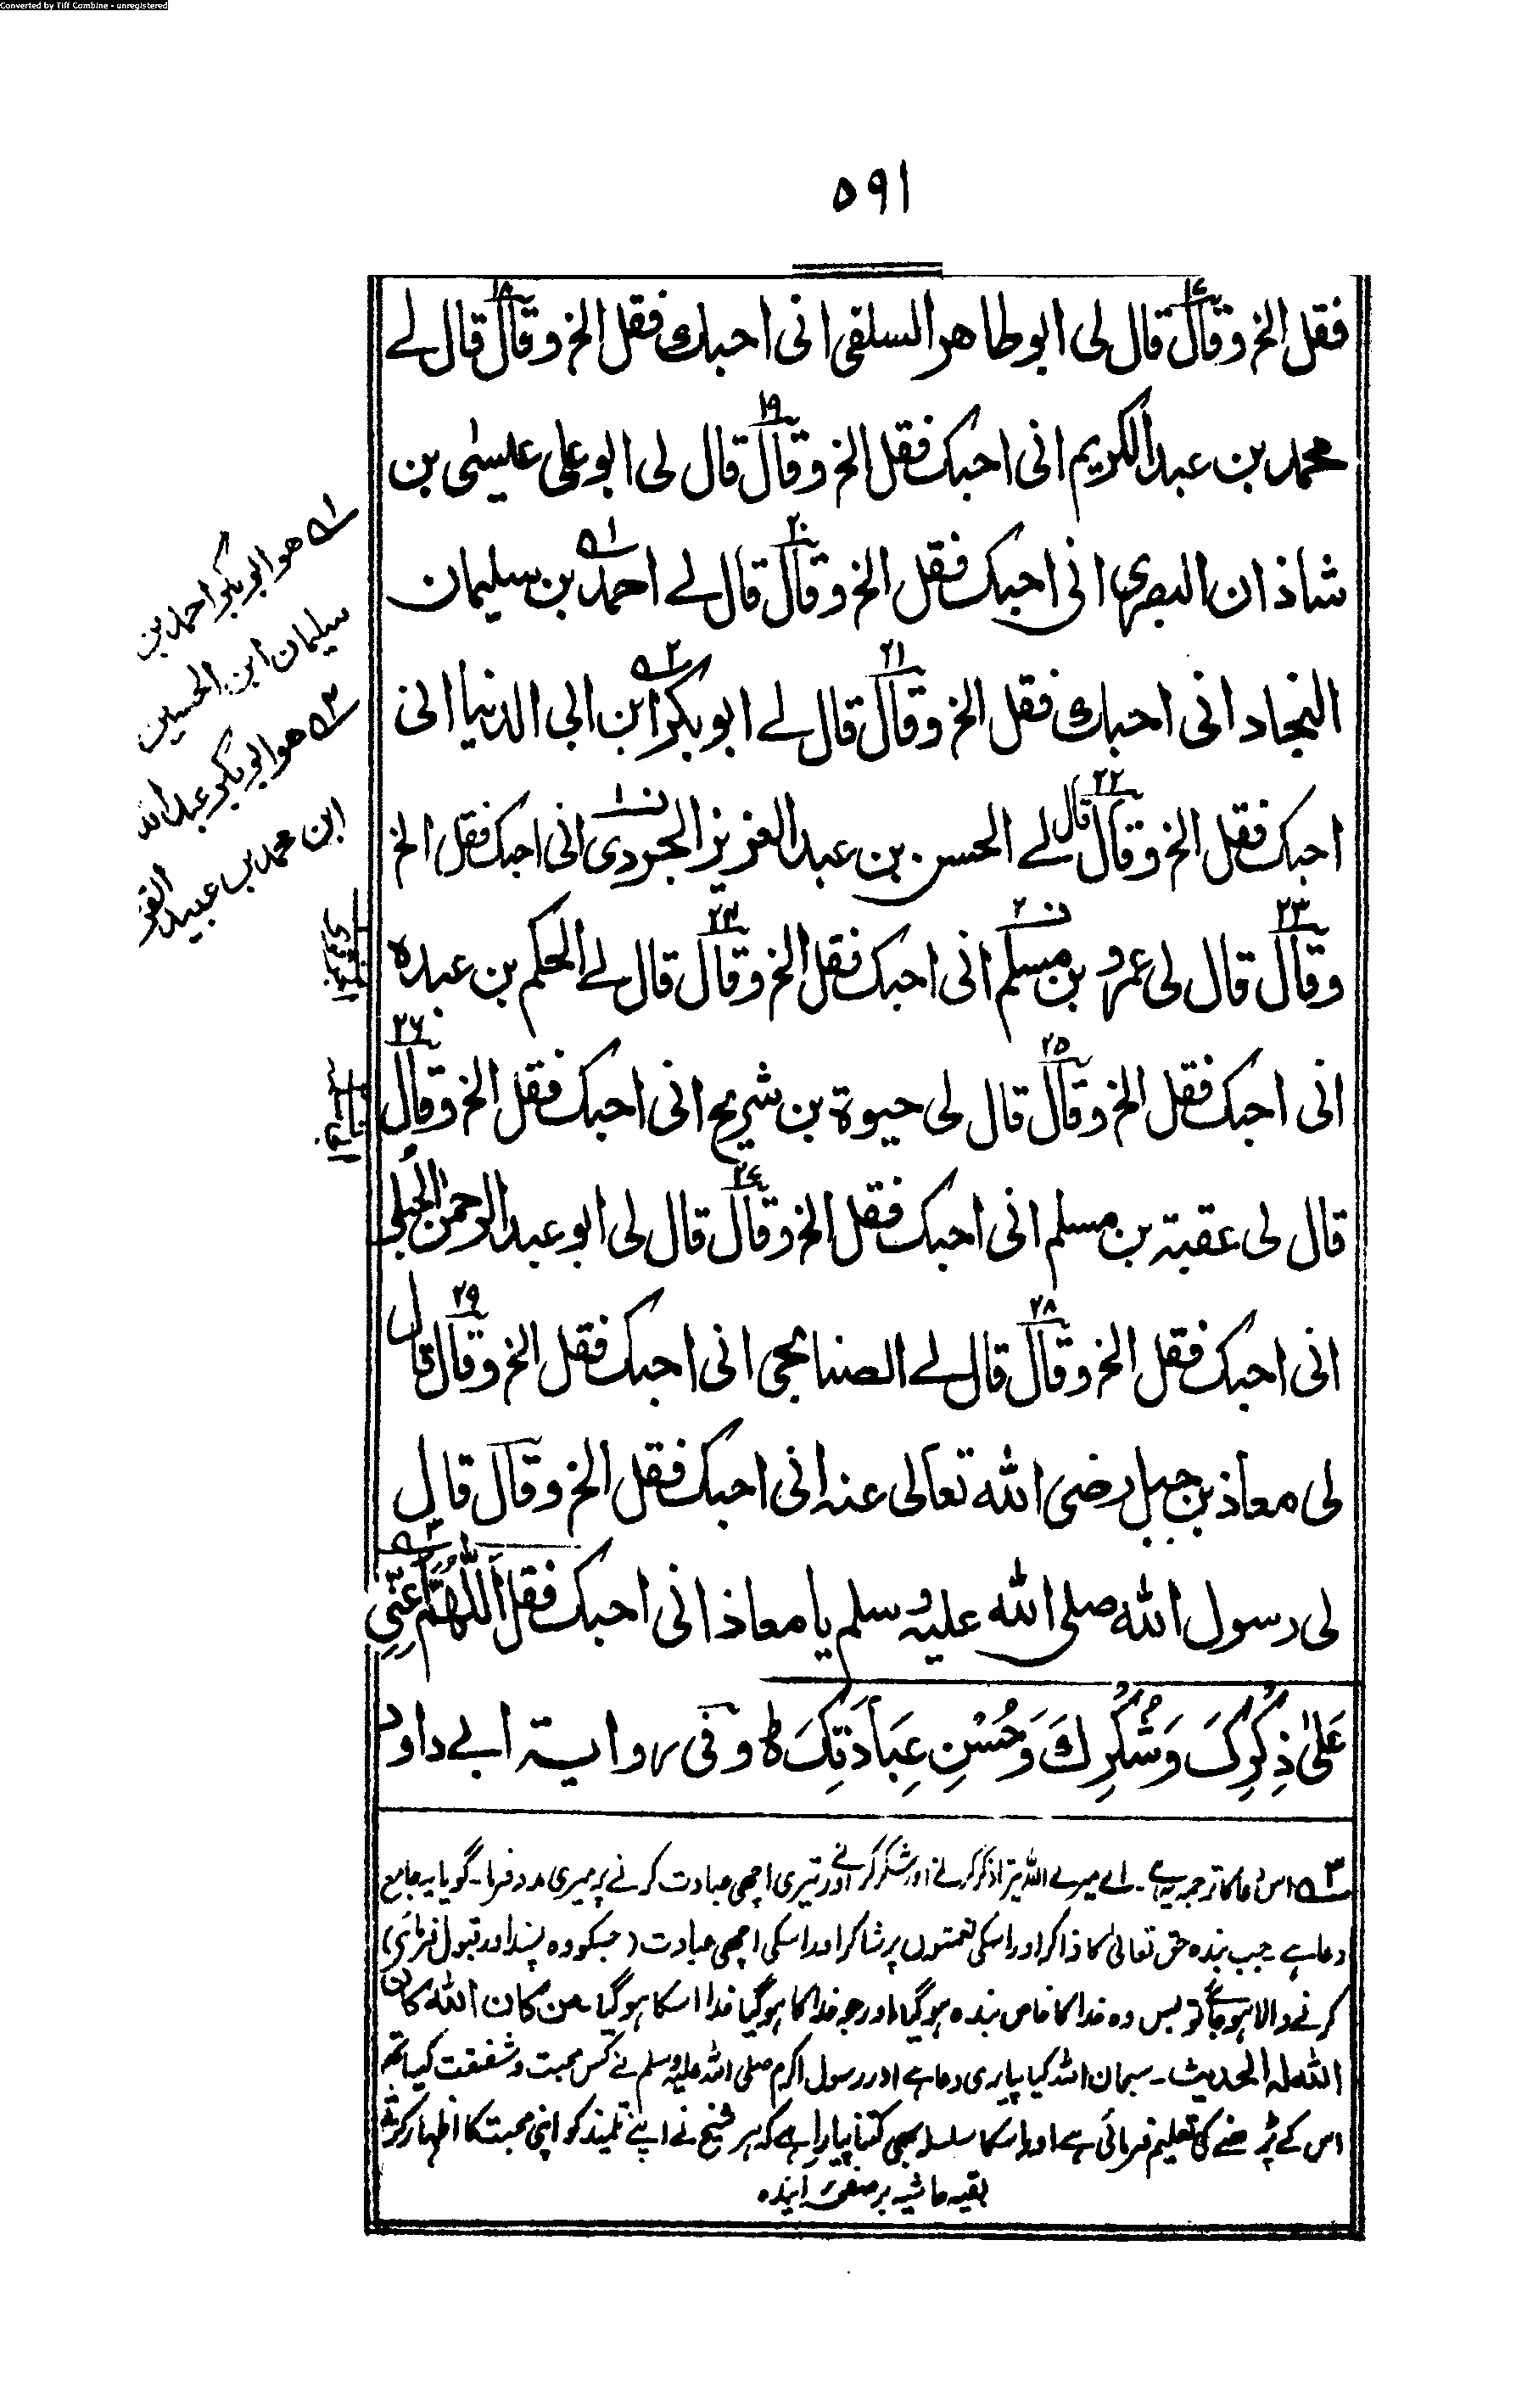 Converted by Tiff Combine - unregistered
۵۹۱
فقل الخ وقال ۱۷ قال لی ابوطاهر السلفی انی احبك فقل الخ وقال ۱۸ قال لے
محمد بن عبد الکریم انی احبك فقل الخ وقال ۱۹ قال لی ابو علی عیسٰی بن
شاذان البصری انی احبك فقل الخ وقال ۲۰ قال لے احمد ۱ بن سلیمان
النجاد انی احبك فقل الخ وقال ۲۱ قال لے ابو بکر ۲ ابن ابی الدنیا انی
احبك فقل الخ وقال ۲۲ قال لے الحسن بن عبد العزیز الجروی ن۱ انی احبك فقل الخ
وقال ۲۳ قال لی عمرو بن مسلم ن۲ انی احبك فقل الخ وقال ۲۴ قال لے الحکم بن عبده
انی احبك فقل الخ وقال ۲۵ قال لی حیوة بن شریح انی احبك فقل الخ وقال ۲۶
قال لی عقبة بن مسلم انی احبك فقل الخ وقال ۲۷ قال لی ابو عبد الرحمن الحُبلی
انی احبك فقل الخ وقال ۲۸ قال لے الصنابحی انی احبك فقل الخ وقال ۲۹ قال
لی معاذ بن جبل رضی الله تعالی عنه انی احبك فقل الخ وقال قال
لی رسول الله صلی الله علیه وسلم یا معاذ انی احبك فقل اَللّٰهُمَّ ۳ اَعِنِّی
عَلٰی ذِکْرِكَ وَشُکْرِكَ وَحُسْنِ عِبَادَتِكَ ط وفی روایة ابے داود
۱ هو ابو بکر احمد بن
سلیمان ابن الحسین
۲ هو ابو بکر عبد الله
ابن محمد بن عبید
۳ اس دعا کا ترجمہ یہ ہے۔ اے میرے اللہ تیرا ذکر کرنے اور شکر کرنے اور تیری اچھی عبادت کرنے پر میری مدد فرما۔ گویا یہ جامع
دعا ہے۔ جب بندہ حق تعالی کا ذاکر اور اسکی نعمتوں پر شاکر اور اسکی اچھی عبادت (جسکو وہ پسند اور قبول فرمائے)
کرنے والا ہو جائے تو بس وہ خدا کا خاص بندہ ہو گیا، اور جو خدا کا ہو گیا خدا اسکا ہو گیا۔ من کان اللہ کان
اللہ لہ الحدیث۔ سبحان اللہ کیا پیاری دعا ہے اور رسول اکرم صلی اللہ علیہ وسلم نے کس محبت و شفقت کیساتھ
اس کے پڑھنے کی تعلیم فرمائی ہے اور اسکا سلسلہ بھی کتنا پیارا ہے کہ ہر شیخ نے اپنے تلمیذ کو اپنی محبت کا اظہار کرتے
بقیہ حاشیہ بر صفحۂ ایندہ